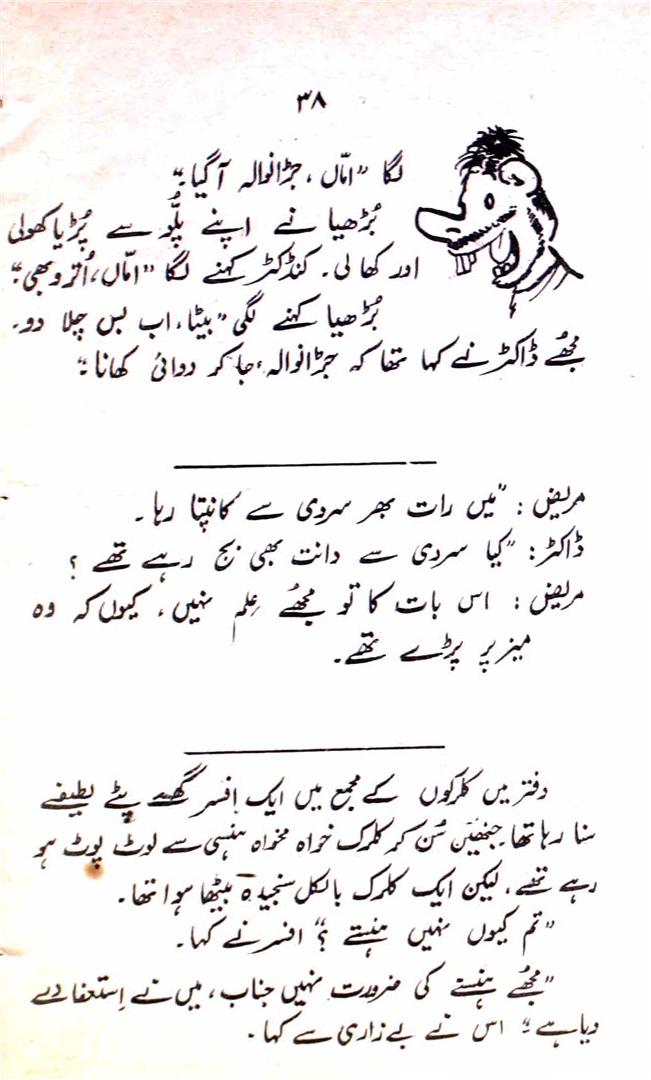 ۳۸
لگا ”امّاں ، جڑانوالہ آگیا۔“
بُڑھیا نے اپنے پلُّو سے پُڑیا کھولی
اور کھا لی۔ کنڈکٹر کہنے لگا ”امّاں، اُترو بھی۔“
بُڑھیا کہنے لگی ”بیٹا، اب بس چلا دو۔
مجھے ڈاکٹر نے کہا تھا کہ جڑانوالہ جا کر دوائی کھانا۔“
مریض : ”میں رات بھر سردی سے کانپتا رہا۔
ڈاکٹر: ”کیا سردی سے دانت بھی بج رہے تھے ؟
مریض : اس بات کا تو مجھے عِلم نہیں، کیوں کہ وہ
میز پر پڑے تھے۔
دفتر میں کلرکوں کے مجمع میں ایک افسر گھسے پٹے لطیفے
سنا رہا تھا جنھیں سُن کر کلرک خواہ مخواہ ہنسی سے لوٹ پوٹ ہو
رہے تھے، لیکن ایک کلرک بالکل سنجیدہ بیٹھا ہوا تھا۔
”تم کیوں نہیں ہنستے ؟“ افسر نے کہا۔
”مجھے ہنسنے کی ضرورت نہیں جناب، میں نے اِستعفا دے
دیا ہے۔“ اس نے بے زاری سے کہا۔